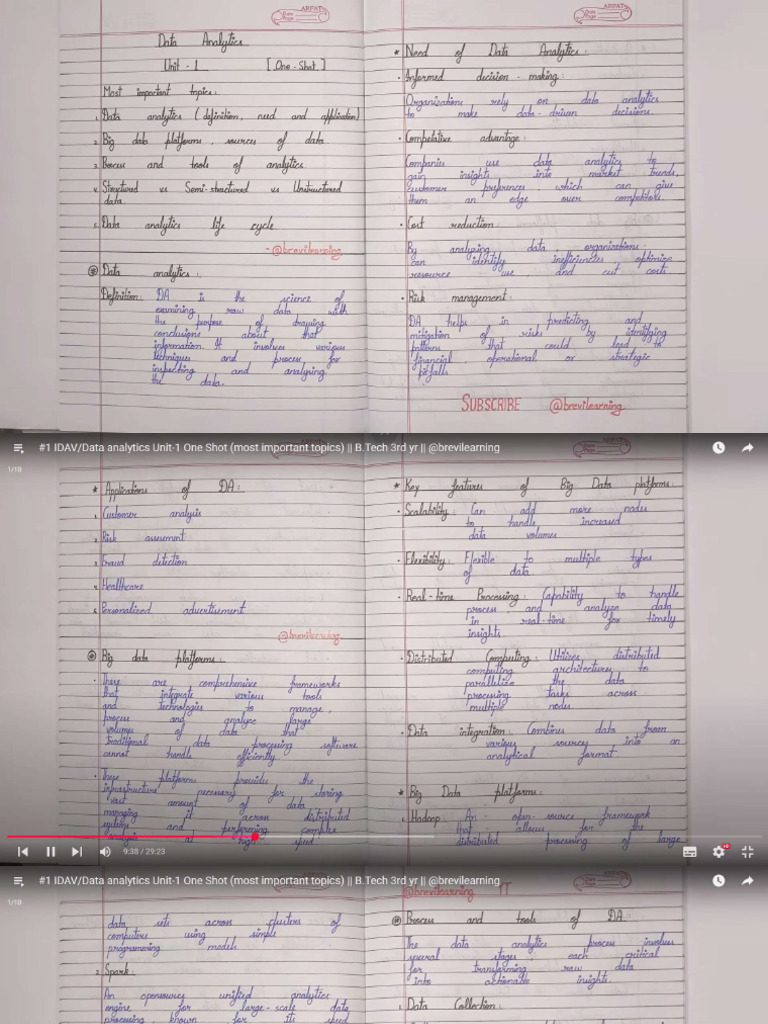 ARPAT
Date
Page
Data Analytics
Unit - 1 [One-Shot]
Most important topics:
1. Data analytics (definition, need and application)
2. Big data platforms, sources of data.
3. Process and tools of analytics
4. Structured vs Semi-structured vs Unstructured
data.
5. Data analytics life cycle.
- @brevilearning
Data analytics:
Definition: DA is the science of
examining raw data with
the purpose of drawing
conclusions about that
information. It involves various
techniques and process for
inspecting and analysing
the data.
ARPAT
Date
Page
* Need of Data Analytics:
• Informed decision-making:
Organizations rely on data analytics
to make data-driven decisions.
• Competative advantage:
Companies use data analytics to
gain insights into market trends,
customer preferences which can give
them an edge over competitors.
• Cost reduction:
By analysing data, organizations
can identify inefficiencies optimize
resource use, and cut costs.
• Risk management:
DA helps in predicting and
mitigation of risks by identifying
patterns that could lead to
financial, operational or strategic
pitfalls
SUBSCRIBE @brevilearning
#1 IDAV/Data analytics Unit-1 One Shot (most important topics) || B.Tech 3rd yr || @brevilearning
1/18
* Applications of DA:
1. Customer analysis
2. Risk assesment
3. Fraud detection
4. Healthcare
5. Personalized advertisement
@brevilearning
Big data platforms:
• These are comprehensive frameworks
that integrate various tools
and technologies to manage,
process and analyse large
volumes of data that
traditional data processing software
cannot handle efficiently.
• These platforms provides the
infrastructure necessary for storing
vast amount of data
managing it across distributed
systems and performing complex
analysis at high speed
* Key features of Big Data platforms:
• Scalability: Can add more nodes
to handle increased
data volumes
• Flexibility: Flexible to multiple types
of data
• Real-time Processing: Capability to handle
process and analyze data
in real-time for timely
insights.
• Distributed Computing: Utilizes distributed
computing architectures to
parallelize the data
processing tasks across
multiple nodes
• Data integration: Combines data from
various sources into an
analytical format.
* Big Data platforms:
1. Hadoop: An open-source framework
that allows for the
distributed processing of large
9:38 / 29:23
#1 IDAV/Data analytics Unit-1 One Shot (most important topics) || B.Tech 3rd yr || @brevilearning
1/18
data sets across clusters of
computers using simple
programming models
2. Spark:
An opensource unified analytics
engine for large-scale data
processing, known for its speed
@brevilearning
Process and tools of DA:
The data analytics process involves
several stages, each critical
for transforming raw data
into actionable insights.
1. Data Collection: